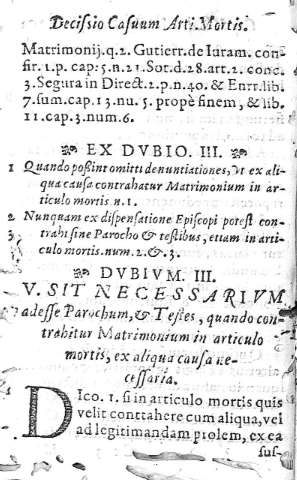 Decissio Casuum Arti. Mortis.
Matrimonij. q. 2. Gutierr. de Iuram. con-
fir. 1. p. cap. 5. n. 21. Sot. d. 28. art. 2. conc.
3. Segura in Direct. 2. p. n. 40. & Enrr. lib.
7. sum. cap. 13. nu. 5. propè finem, & lib.
11. cap. 3. num. 6.
EX DVBIO. III.
1 Quando poßint omitti denuntiationes, vt ex ali-
qua causa contrahatur Matrimonium in ar-
ticulo mortis n. 1.
2 Nunquam ex dispensatione Episcopi potest con-
3 trahi sine Parocho & testibus, etiam in arti-
culo mortis. num. 2. & 3.
DVBIVM. III.
V. SIT NECESSARIVM
adesse Parochum, & Testes, quando con-
trahitur Matrimonium in articulo
mortis, ex aliqua causa ne-
cessaria.
DIco. 1. si in articulo mortis quis
velit conttahere cum aliqua, vel
ad legitimandam prolem, ex ea
sus-